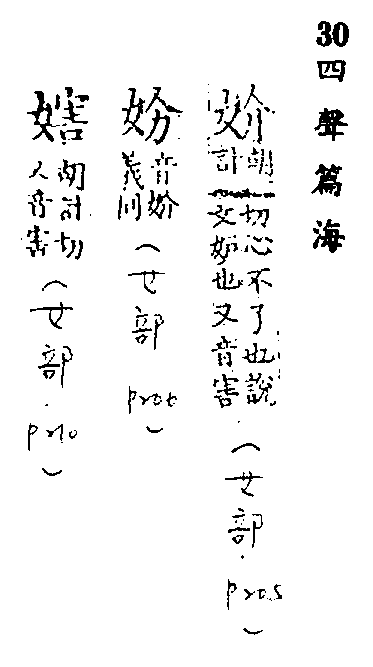 30四聲篇海
妎 胡計切心不了也說文妒也又音害(女部.P205)
妢 音妎義同(女部P206)
㛿 胡計切又音害(女部.P210)